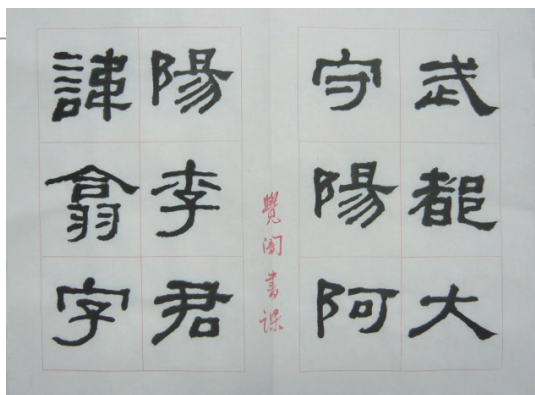 武都大
守陽阿
覺書課
陽李君
諱翕字